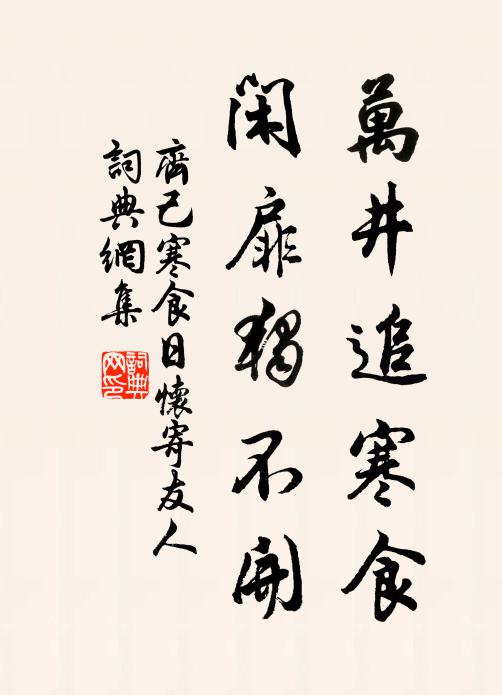 萬井追寒食
閑扉獨不開
齊己寒食日懷寄友人
詞典網集
詞典網印